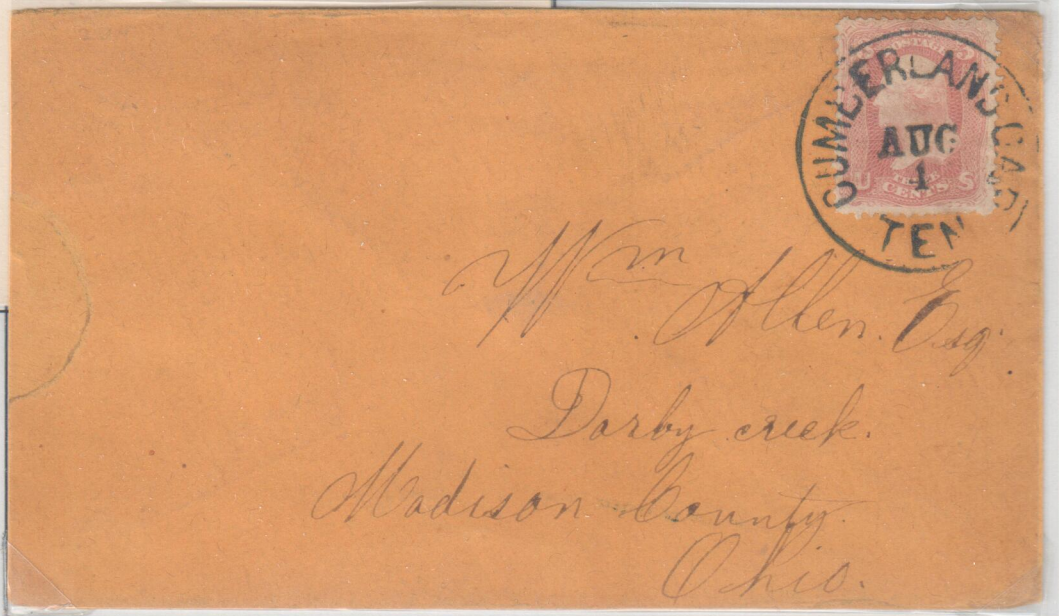 U.S. POSTAGE
CUMBERLAND GAP
AUG
4
TEN
U THREE S
CENTS
Wm Allen. Esq.
Darby creek.
Madison County.
Ohio.